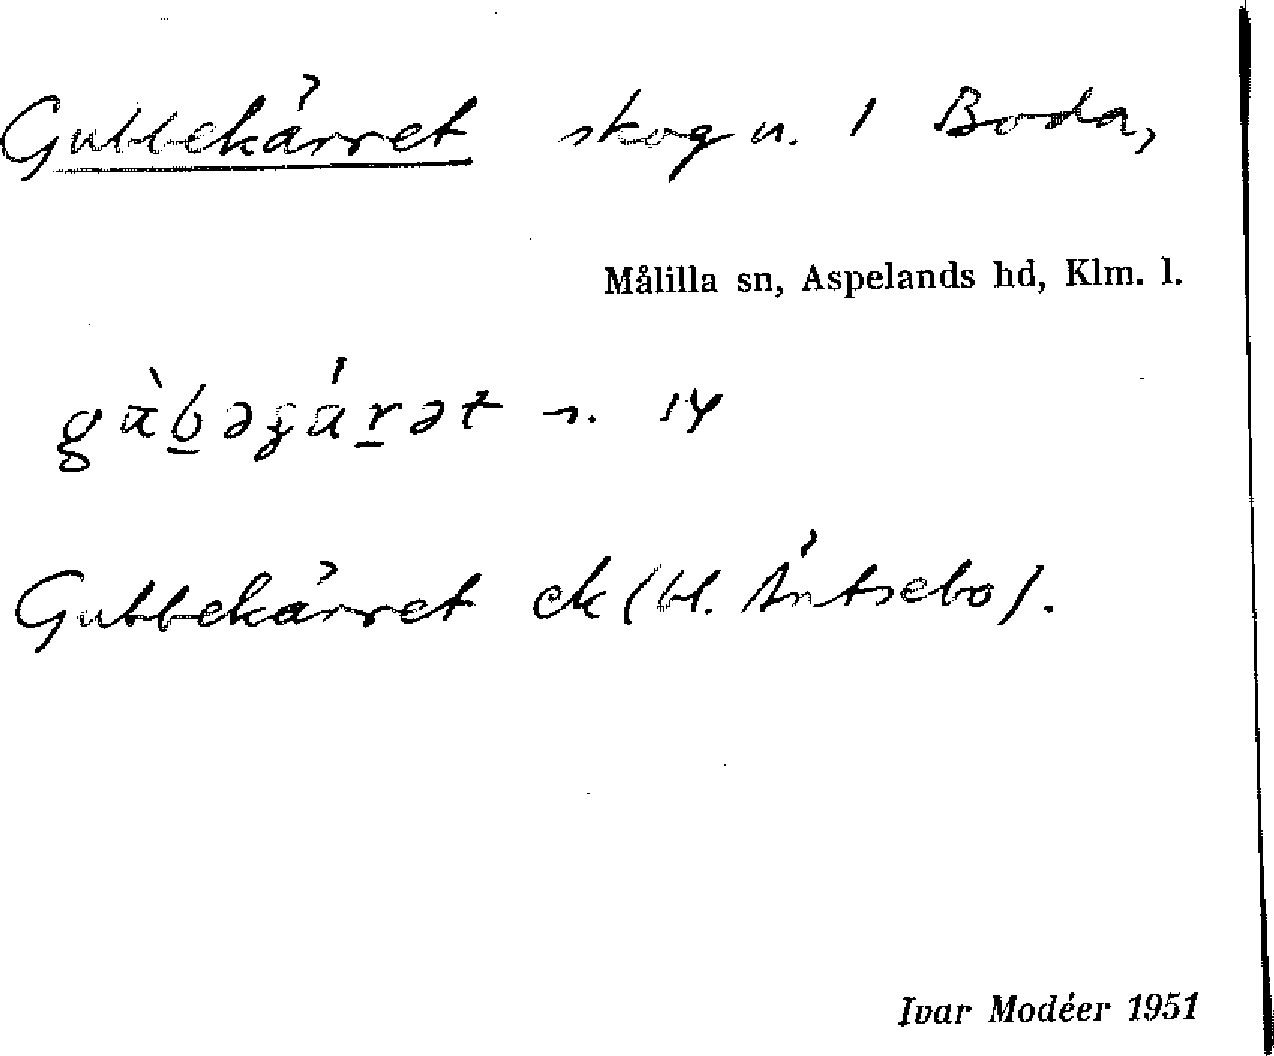 Gubbekärret skog n. 1 Boda,
Målilla sn, Aspelands hd, Klm. l.
n. 14
Gubbekärret ek (bl. Äntsebo).
Ivar Modéer 1951